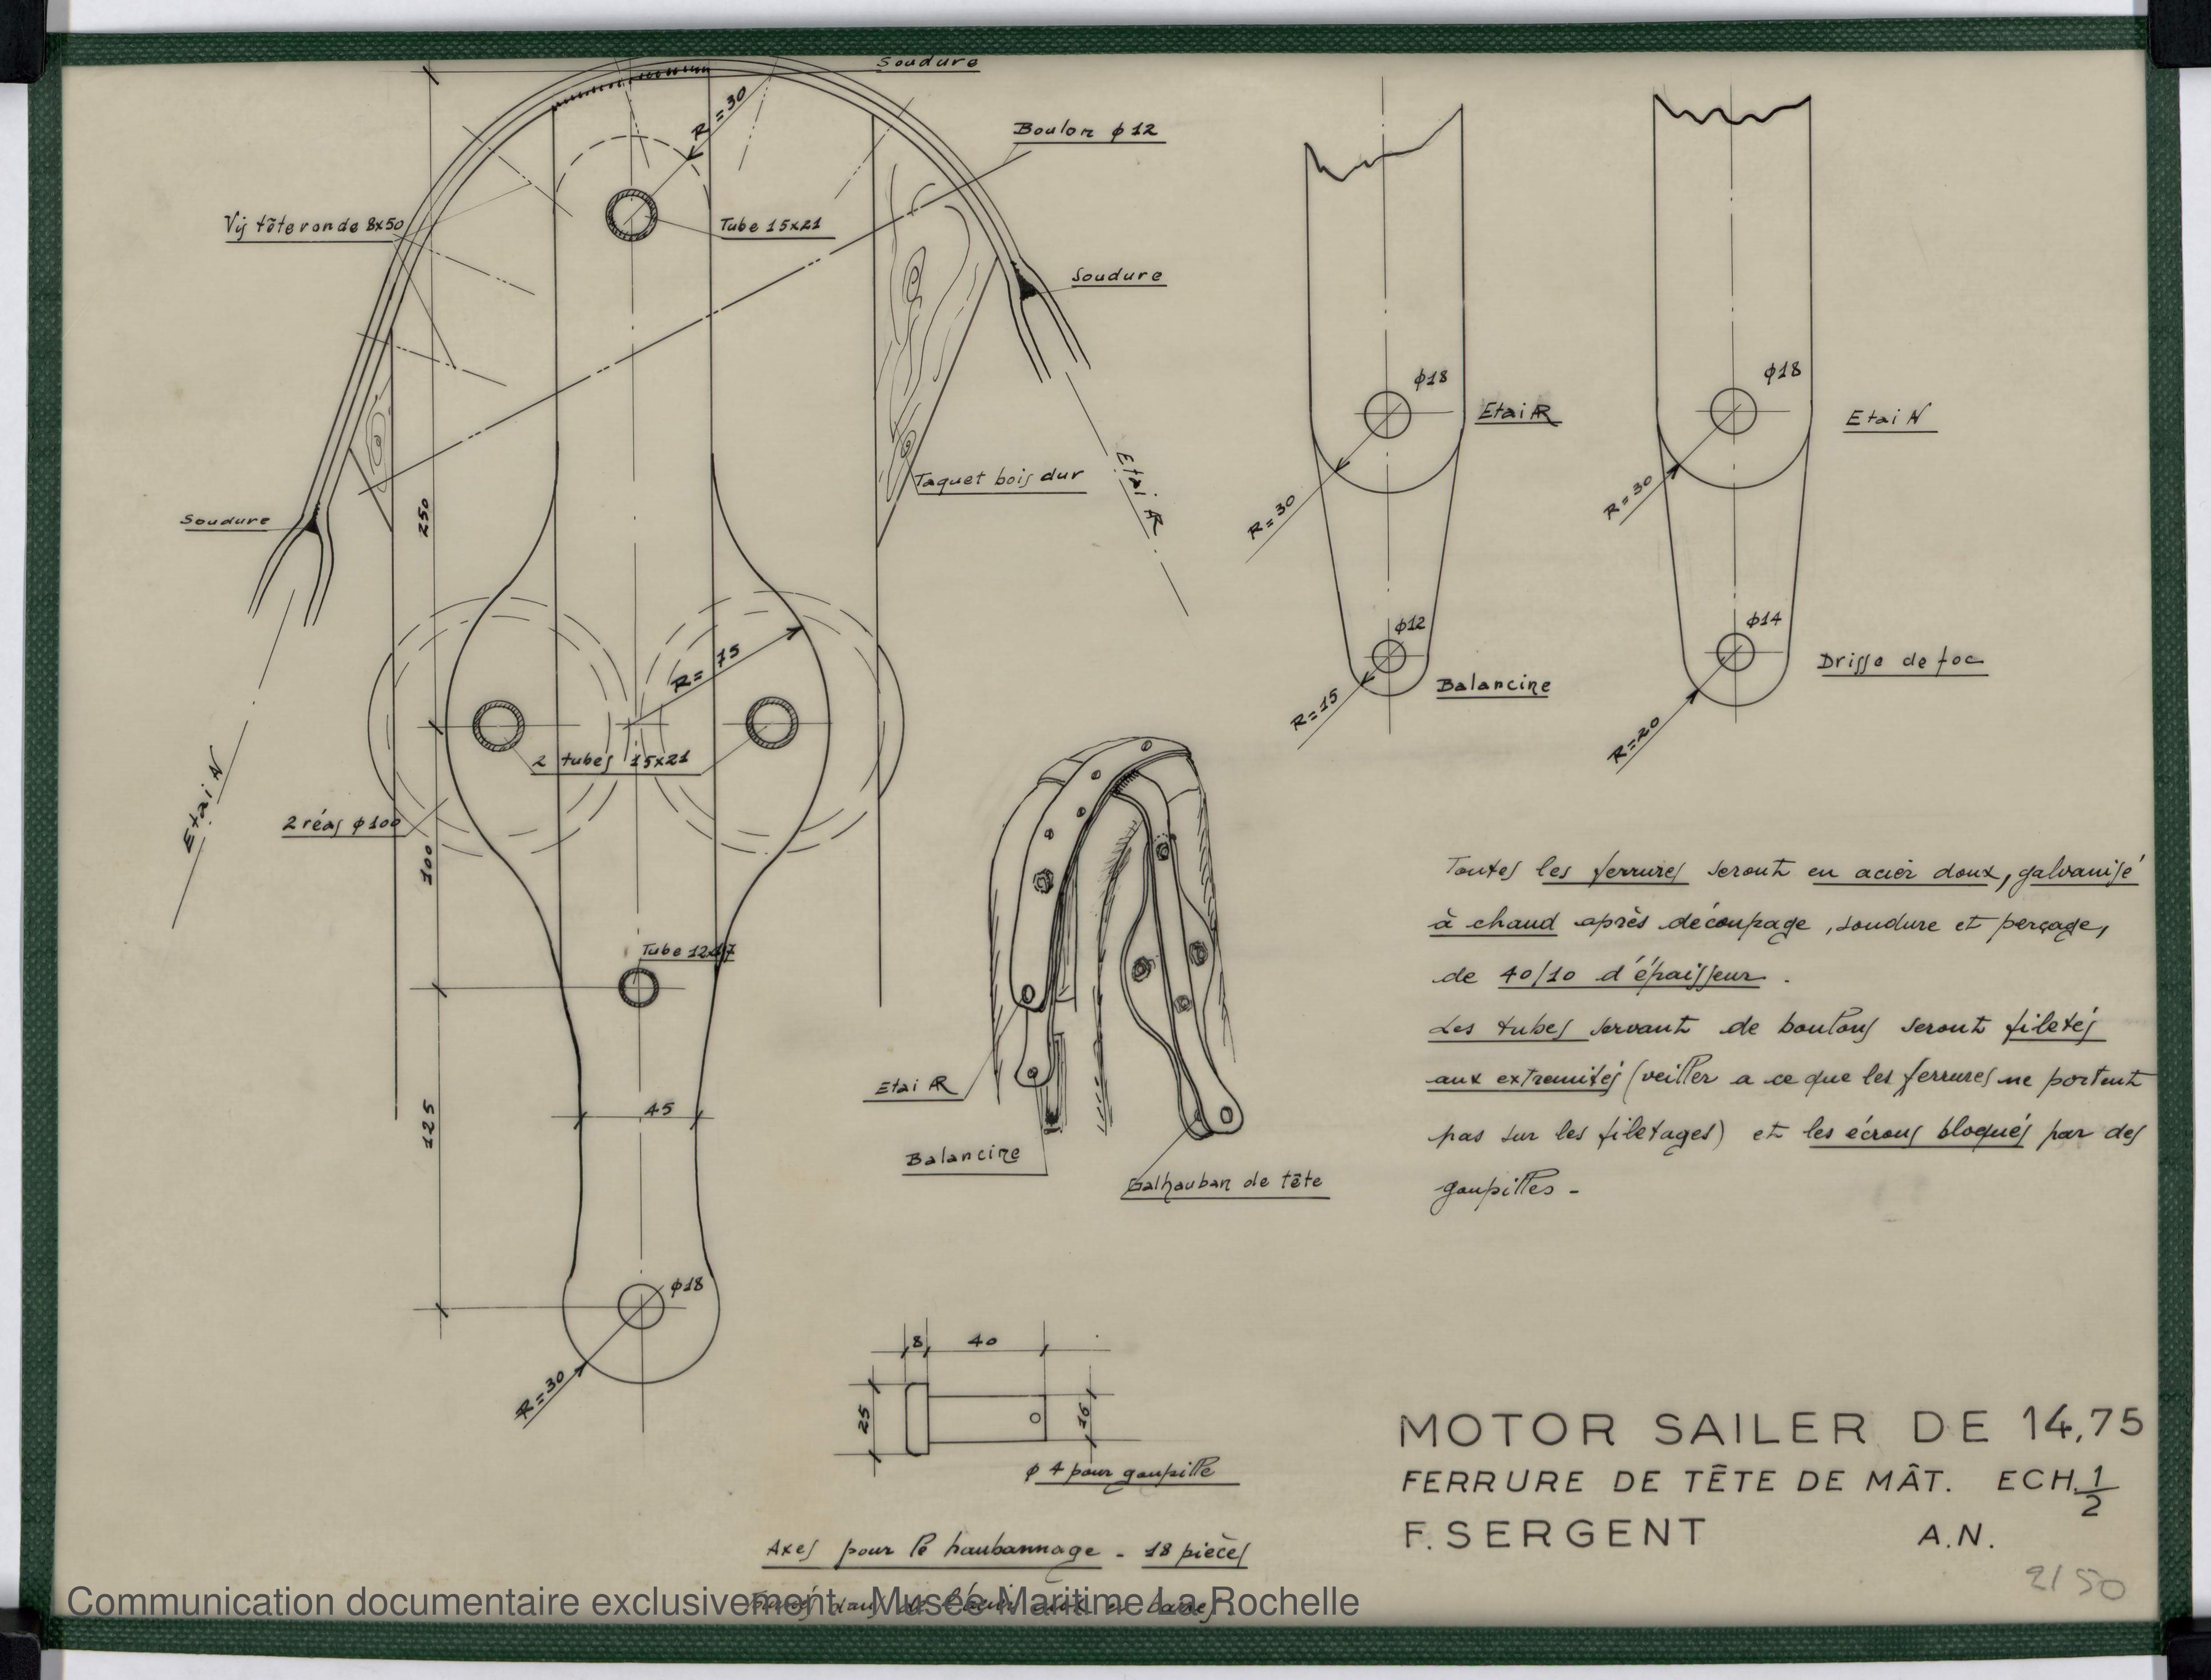 Soudure
R=30
Boulon ϕ12
Vis tête ronde 8x50
Tube 15x21
Soudure
ϕ18
Etai AR
ϕ18
Etai AV
Taquet bois dur
Etai AR
250
Soudure
R=30
R=30
ϕ12
Balancine
R=15
ϕ14
Drisse de foc
R=20
R=75
2 tubes 15x21
Etai AV
2 réas ϕ100
100
Tube
125
45
ϕ18
R=30
Etai AR
Balancine
Galhauban de tête
Toutes les ferrures seront en acier doux, galvanisé
à chaud après découpage, soudure et perçage,
de 40/10 d'épaisseur.
Les tubes servant de boulons seront filetés
aux extremités (veiller a ce que les ferrures ne portent
pas sur les filetages) et les écrous bloqués par des
goupilles -
8
40
25
16
ϕ 4 pour goupille
Axes pour le haubannage - 18 pièces
MOTOR SAILER DE 14,75
FERRURE DE TÊTE DE MÂT. ECH. 1/2
F. SERGENT A.N.
2150
Communication documentaire exclusivement - Musée Maritime La Rochelle